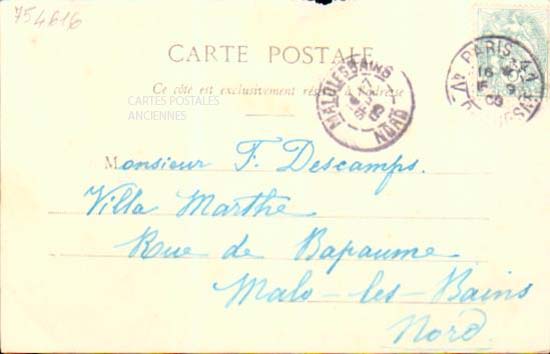 754616
CARTE POSTALE
Ce côté est exclusivement réservé à l'adresse
CARTES POSTALES
ANCIENNES
MALO LES BAINS
NORD
PARIS
Monsieur F. Descamps.
Villa Marthe
Rue de Bapaume
Malo-les-Bains
Nord.